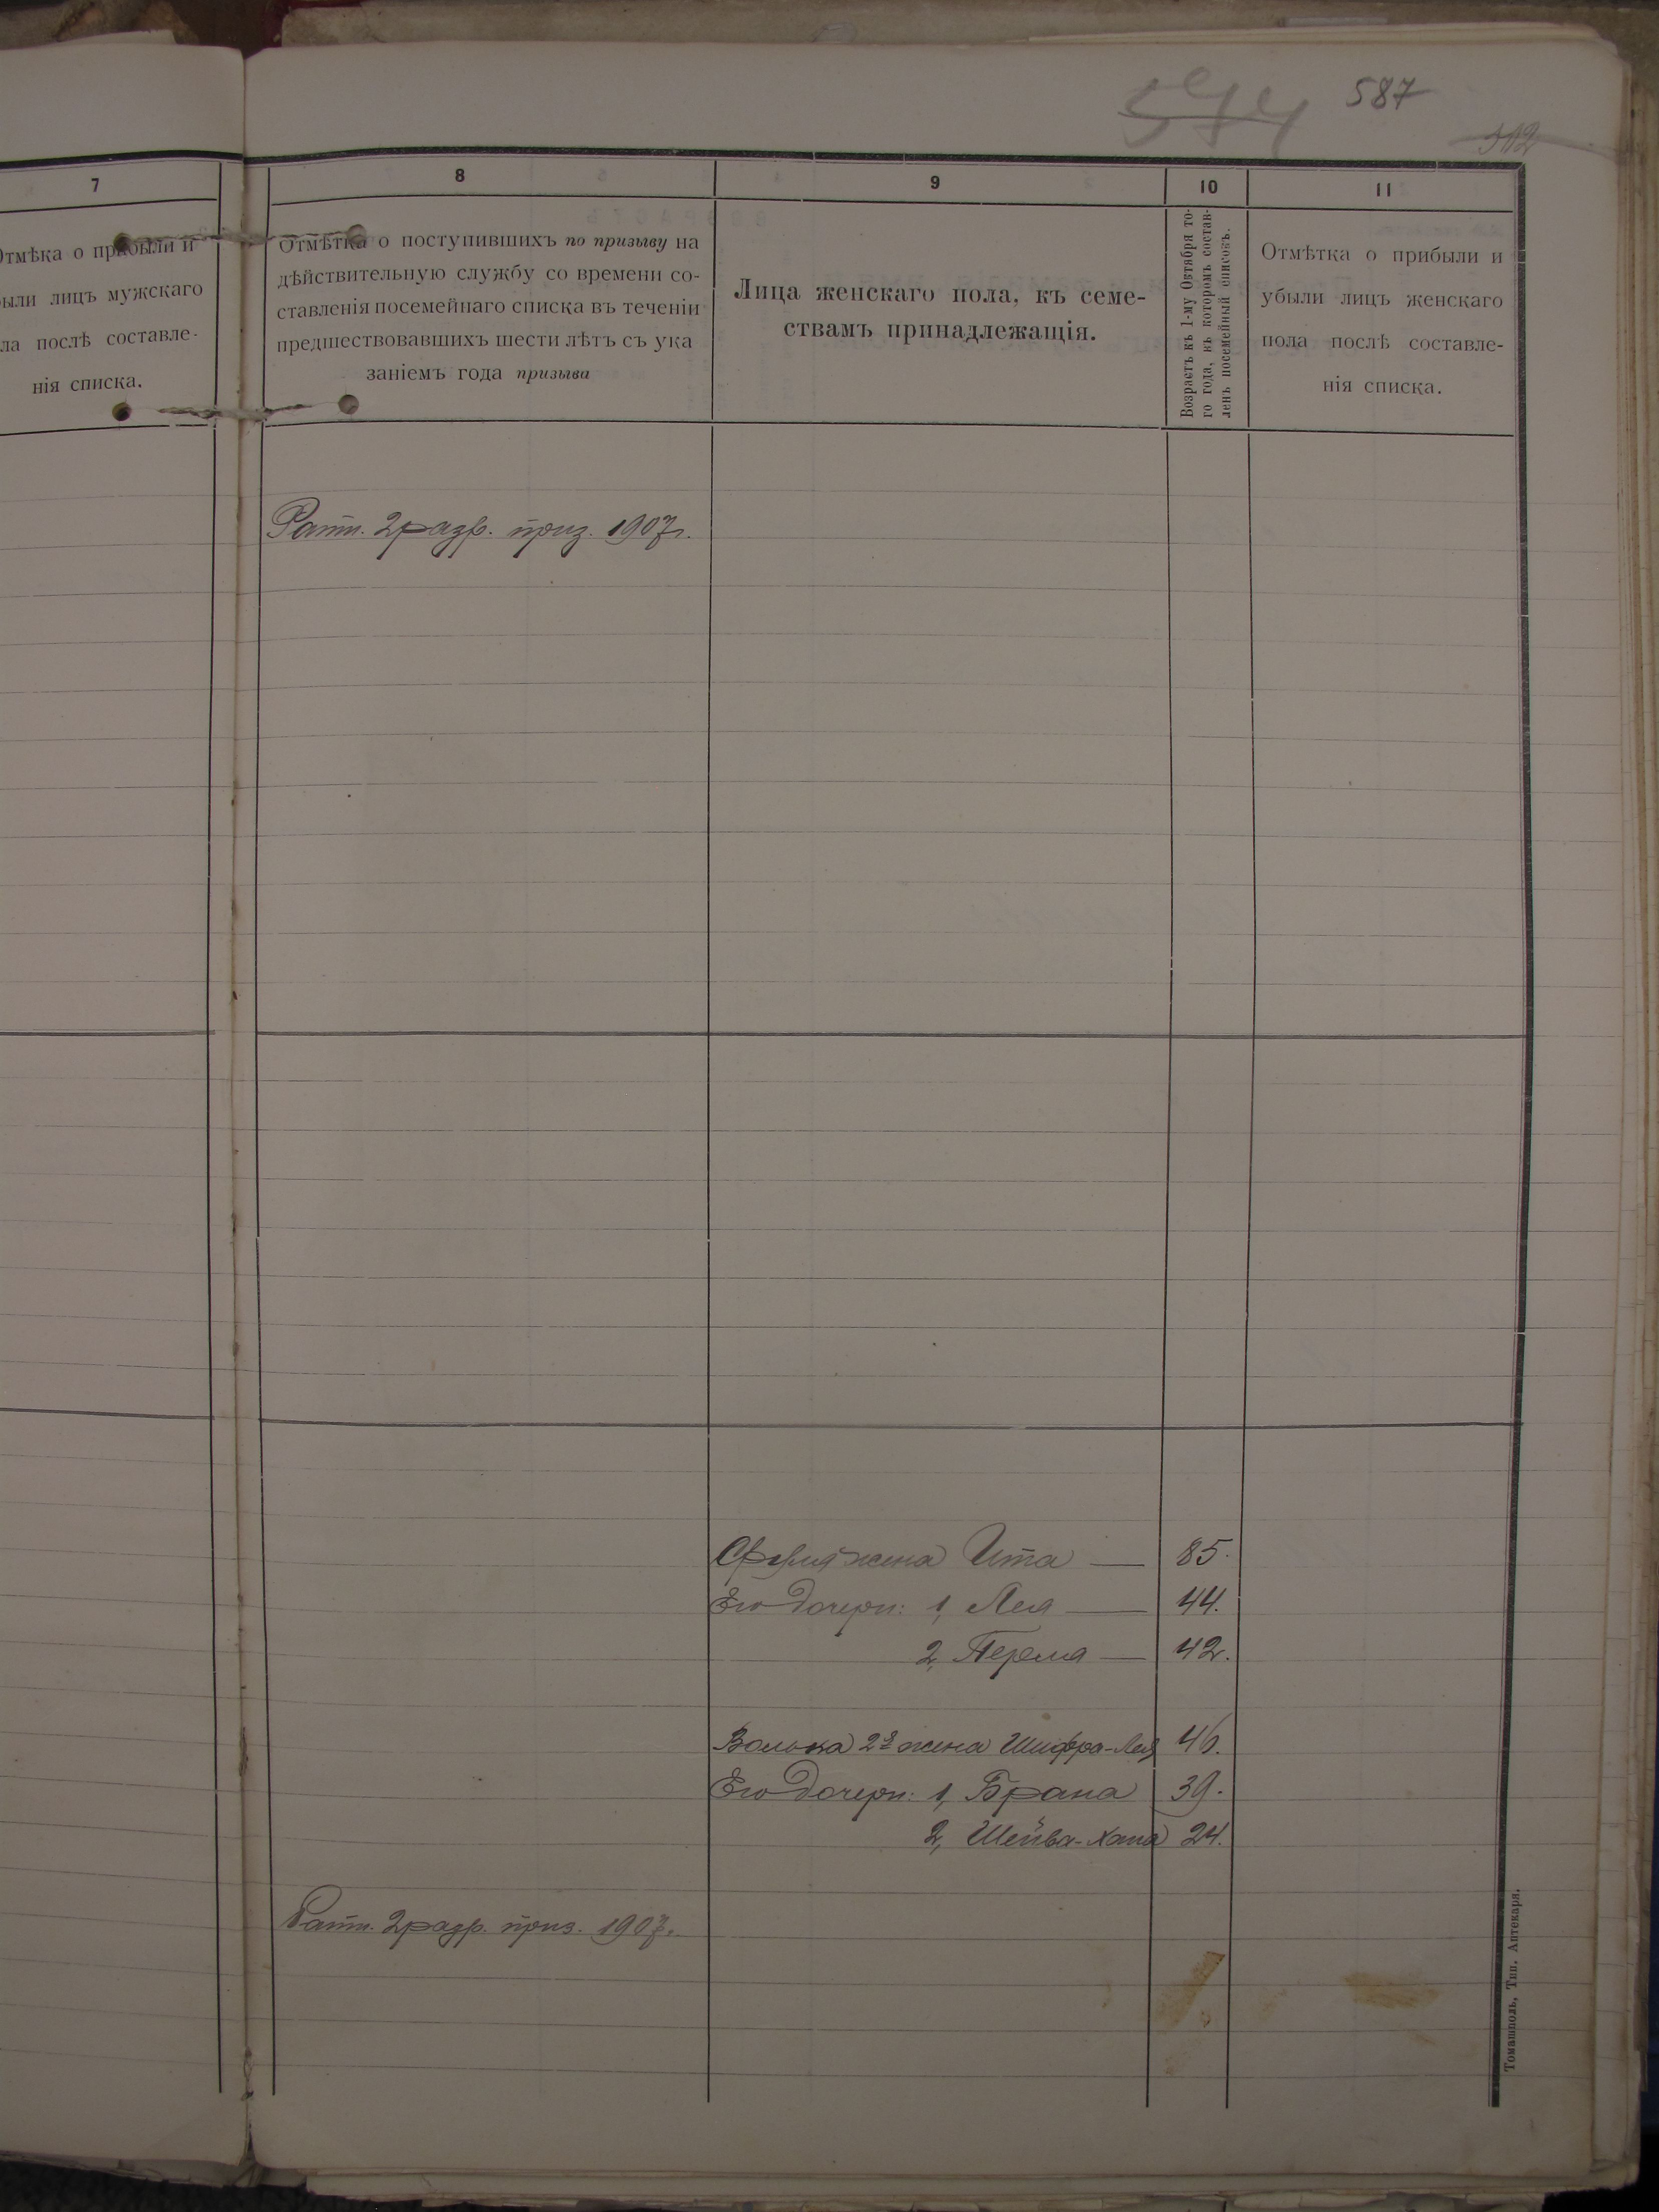 587
7
Отмѣка о прибыли и
ыли лицъ мужскаго
ла послѣ составле-
нія списка.
8
Отмѣтка о поступившихъ по призыву на
дѣйствительную службу со времени со-
ставленія посемейнаго списка въ теченіи
предшествовавшихъ шести лѣтъ съ ука
заніемъ года призыва
9
Лица женскаго пола, къ семе-
ствамъ принадлежащія.
10
Возрастъ къ 1-му Октября то-
го года, къ которомъ состав-
ленъ посемейный списокъ.
11
Отмѣтка о прибыли и
убыли лицъ женскаго
пола послѣ составле-
нія списка.
Ратн. 2 разр. приз. 1907 г.
жена Ита — 85.
Его дочери: 1, Лея — 44.
2, Перля — 42.
Волька 2я жена Шифра-Лея 46.
Его дочери: 1, Брана 39.
2, Шейва-Хана 24.
Ратн. 2 разр. приз. 1907.
Томашполь, Тип. Аптекаря.